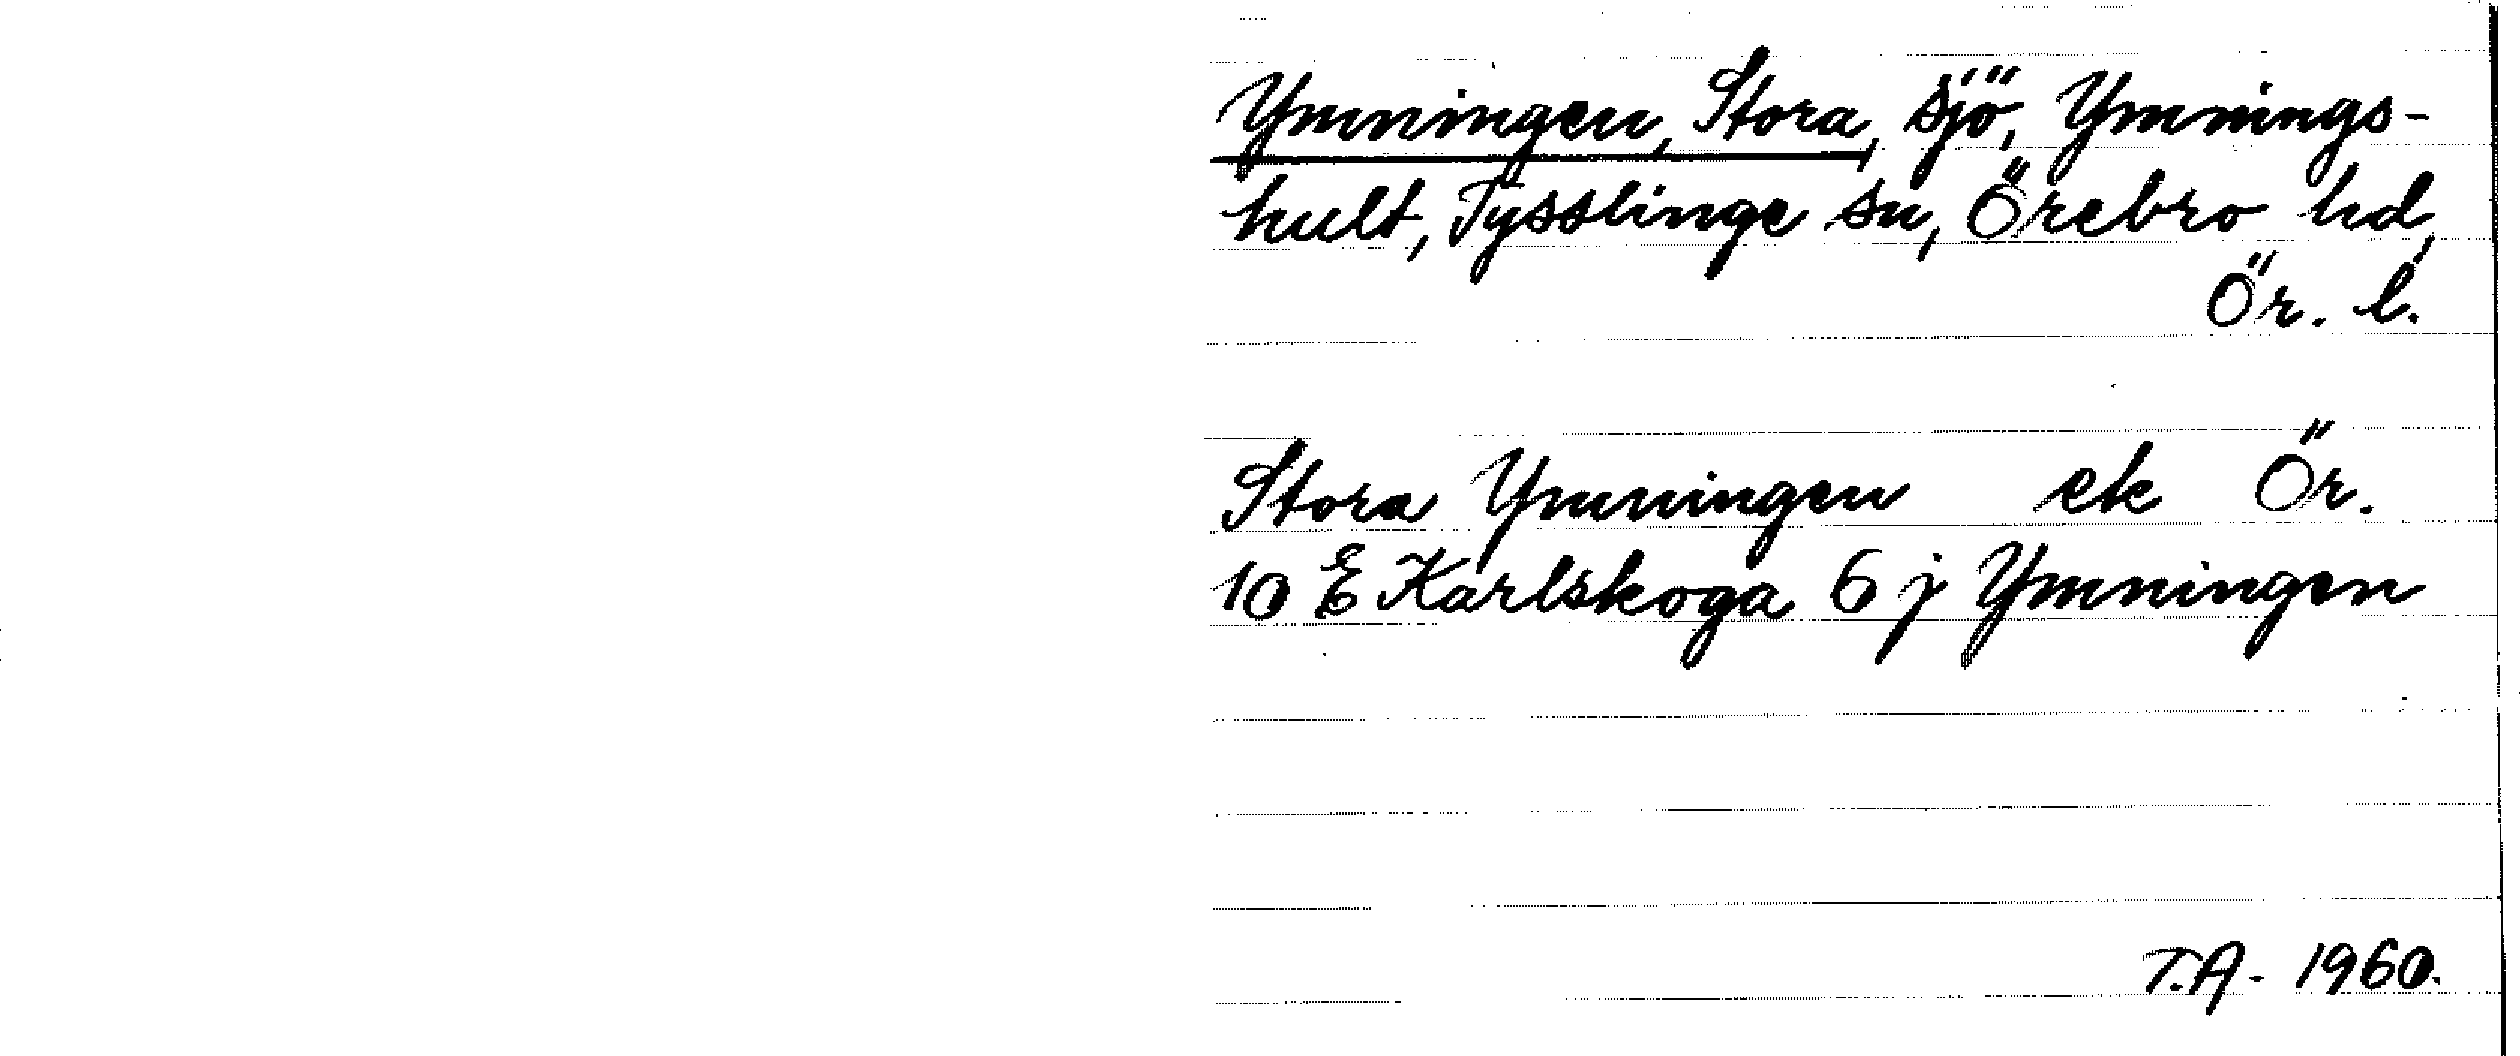 Ymningen, Stora, sjö, Ymnings-
hult, Tysslinge sn, Örebro hd,
Ör. l.
Stora Ymningen ek Ör.
10 E Karlskoga 6 j Ymningen
T.A. 1960.